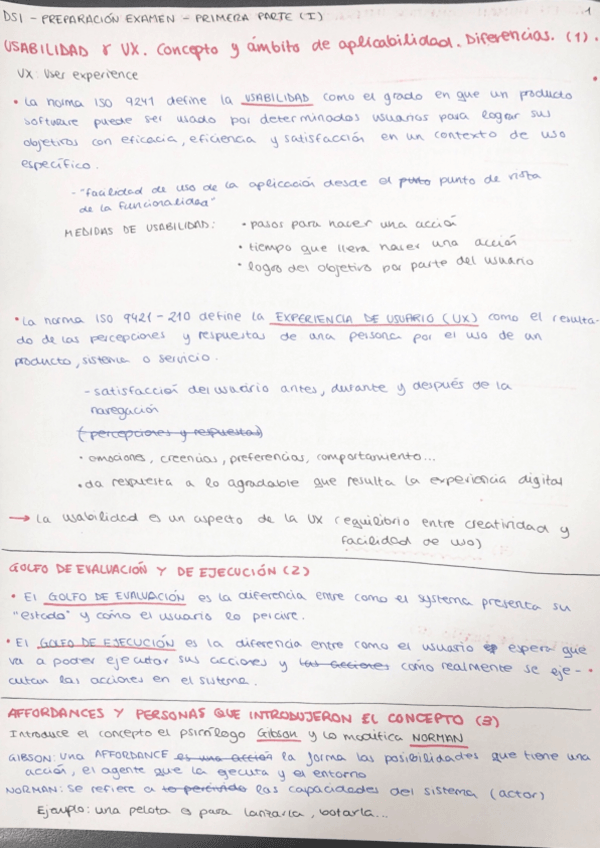 DSI - PREPARACIÓN EXAMEN - PRIMERA PARTE (I)
1
USABILIDAD Y UX. Concepto y ámbito de aplicabilidad. Diferencias. (1).
UX: User experience
• La norma ISO 9241 define la USABILIDAD como el grado en que un producto
software puede ser usado por determinados usuarios para lograr sus
objetivos con eficacia, eficiencia y satisfacción en un contexto de uso
específico.
- "facilidad de uso de la aplicación desde el punto punto de vista
de la funcionalidad"
MEDIDAS DE USABILIDAD: • pasos para hacer una acción
• tiempo que lleva hacer una acción
• logro del objetivo por parte del usuario
• La norma ISO 9421-210 define la EXPERIENCIA DE USUARIO (UX) como el resulta-
do de las percepciones y respuestas de una persona por el uso de un
producto, sistema o servicio.
- satisfacción del usuario antes, durante y después de la
navegación
(percepciones y respuestas)
• emociones, creencias, preferencias, comportamiento...
• da respuesta a lo agradable que resulta la experiencia digital
→ la usabilidad es un aspecto de la UX (equilibrio entre creatividad y
facilidad de uso)
GOLFO DE EVALUACIÓN Y DE EJECUCIÓN (2)
• El GOLFO DE EVALUACIÓN es la diferencia entre como el sistema presenta su
"estado" y cómo el usuario lo percive.
• El GOLFO DE EJECUCIÓN es la diferencia entre como el usuario espera que
va a poder ejecutar sus acciones y las acciones cómo realmente se eje-
cutan las acciones en el sistema.
AFFORDANCES Y PERSONAS QUE INTRODUJERON EL CONCEPTO (3)
Introduce el concepto el psicólogo Gibson y lo modifica NORMAN
GIBSON: Una AFFORDANCE es una acción la forma las posibilidades que tiene una
acción, el agente que la ejecuta y el entorno
NORMAN: Se refiere a lo percivido las capacidades del sistema (actor)
Ejemplo: una pelota es para lanzarla, botarla...